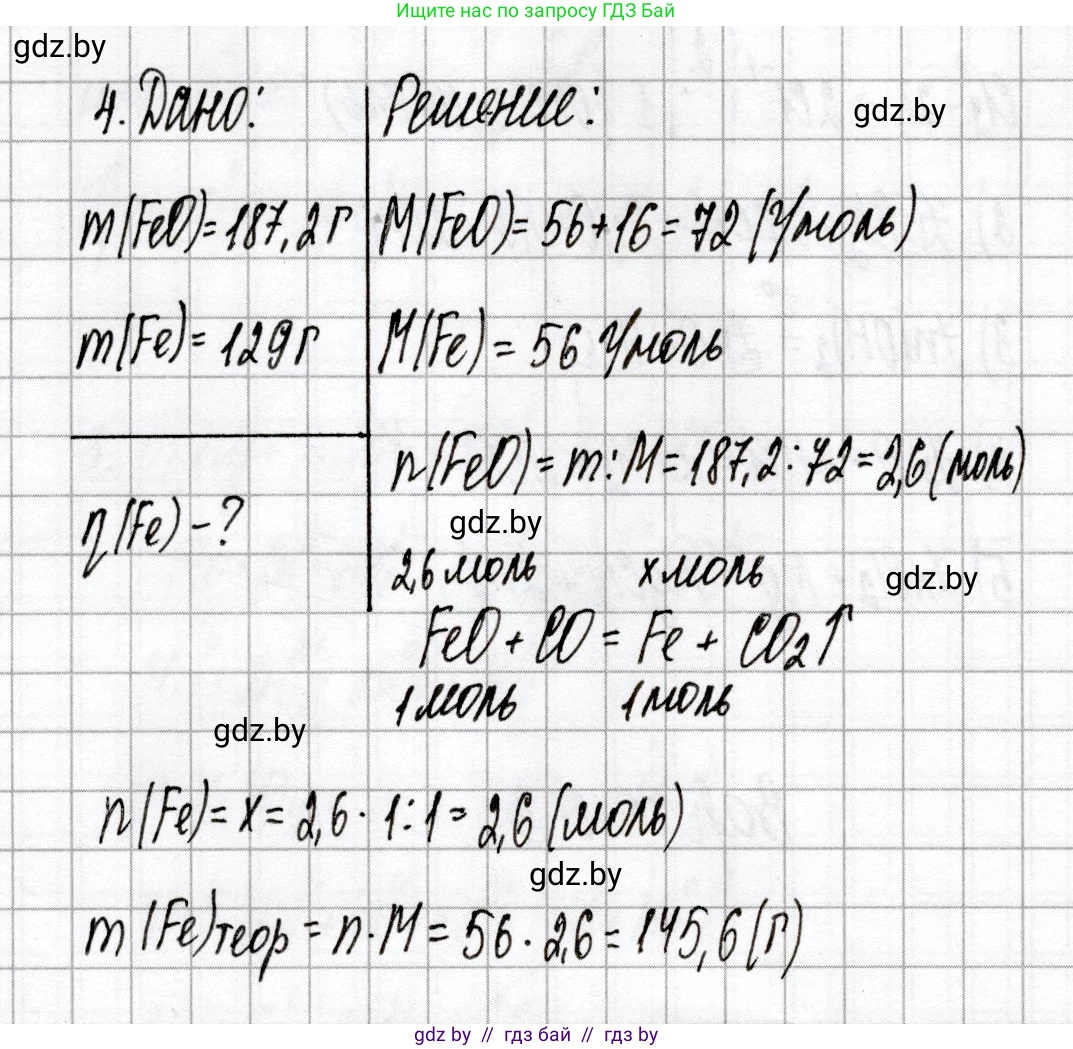 Ищите нас по запросу ГДЗ Бай
gdz.by
4. Дано:
Решение:
gdz.by
m(FeO)=187,2 г
M(FeO)= 56+16=72 (г/моль)
m(Fe)= 129 г
M(Fe) = 56 г/моль
n(FeO)=m:M=187,2:72=2,6(моль)
η(Fe) -?
gdz.by
2,6 моль x моль
gdz.by
FeO + CO = Fe + CO₂↑
1 моль 1 моль
gdz.by
n(Fe)= x= 2,6 · 1:1= 2,6 (моль)
gdz.by
m(Fe)теор = n·M = 56 · 2,6 = 145,6(г)
gdz.by // гдз бай // гдз by